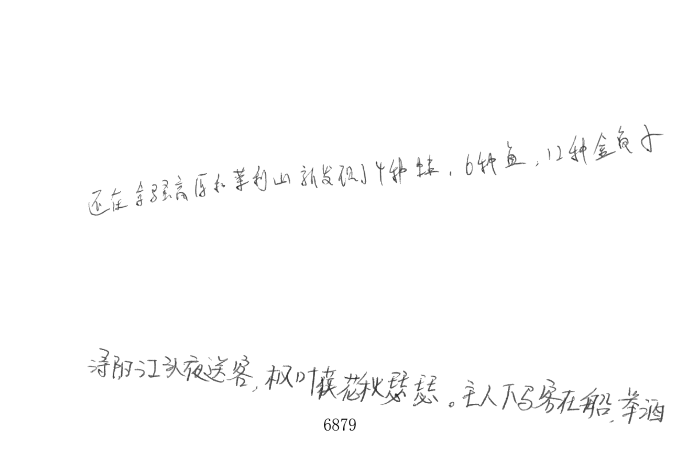 还在拿强高原和莱利山新发现了4种蛙，6种鱼，12种金龟子
浔阳江头夜送客，枫叶荻花秋瑟瑟。主人下马客在船，举酒
6879